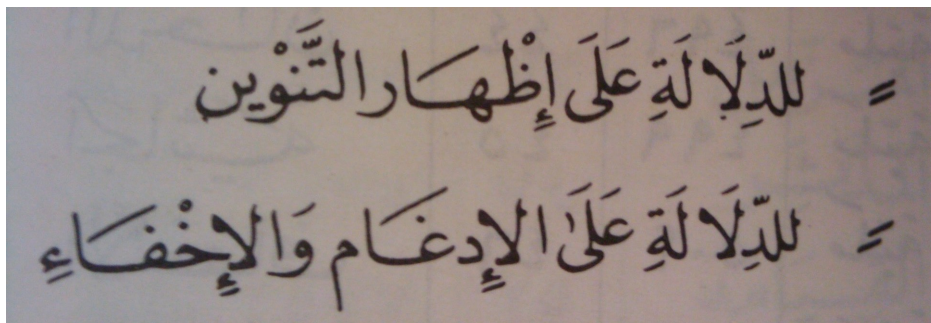 ـٍ للدِّلَالَةِ عَلَى إِظْهَار التَّنْوِين
ـٍ للدِّلَالَةِ عَلَىٰ الإِدغَام وَالإِخْفَاءِ